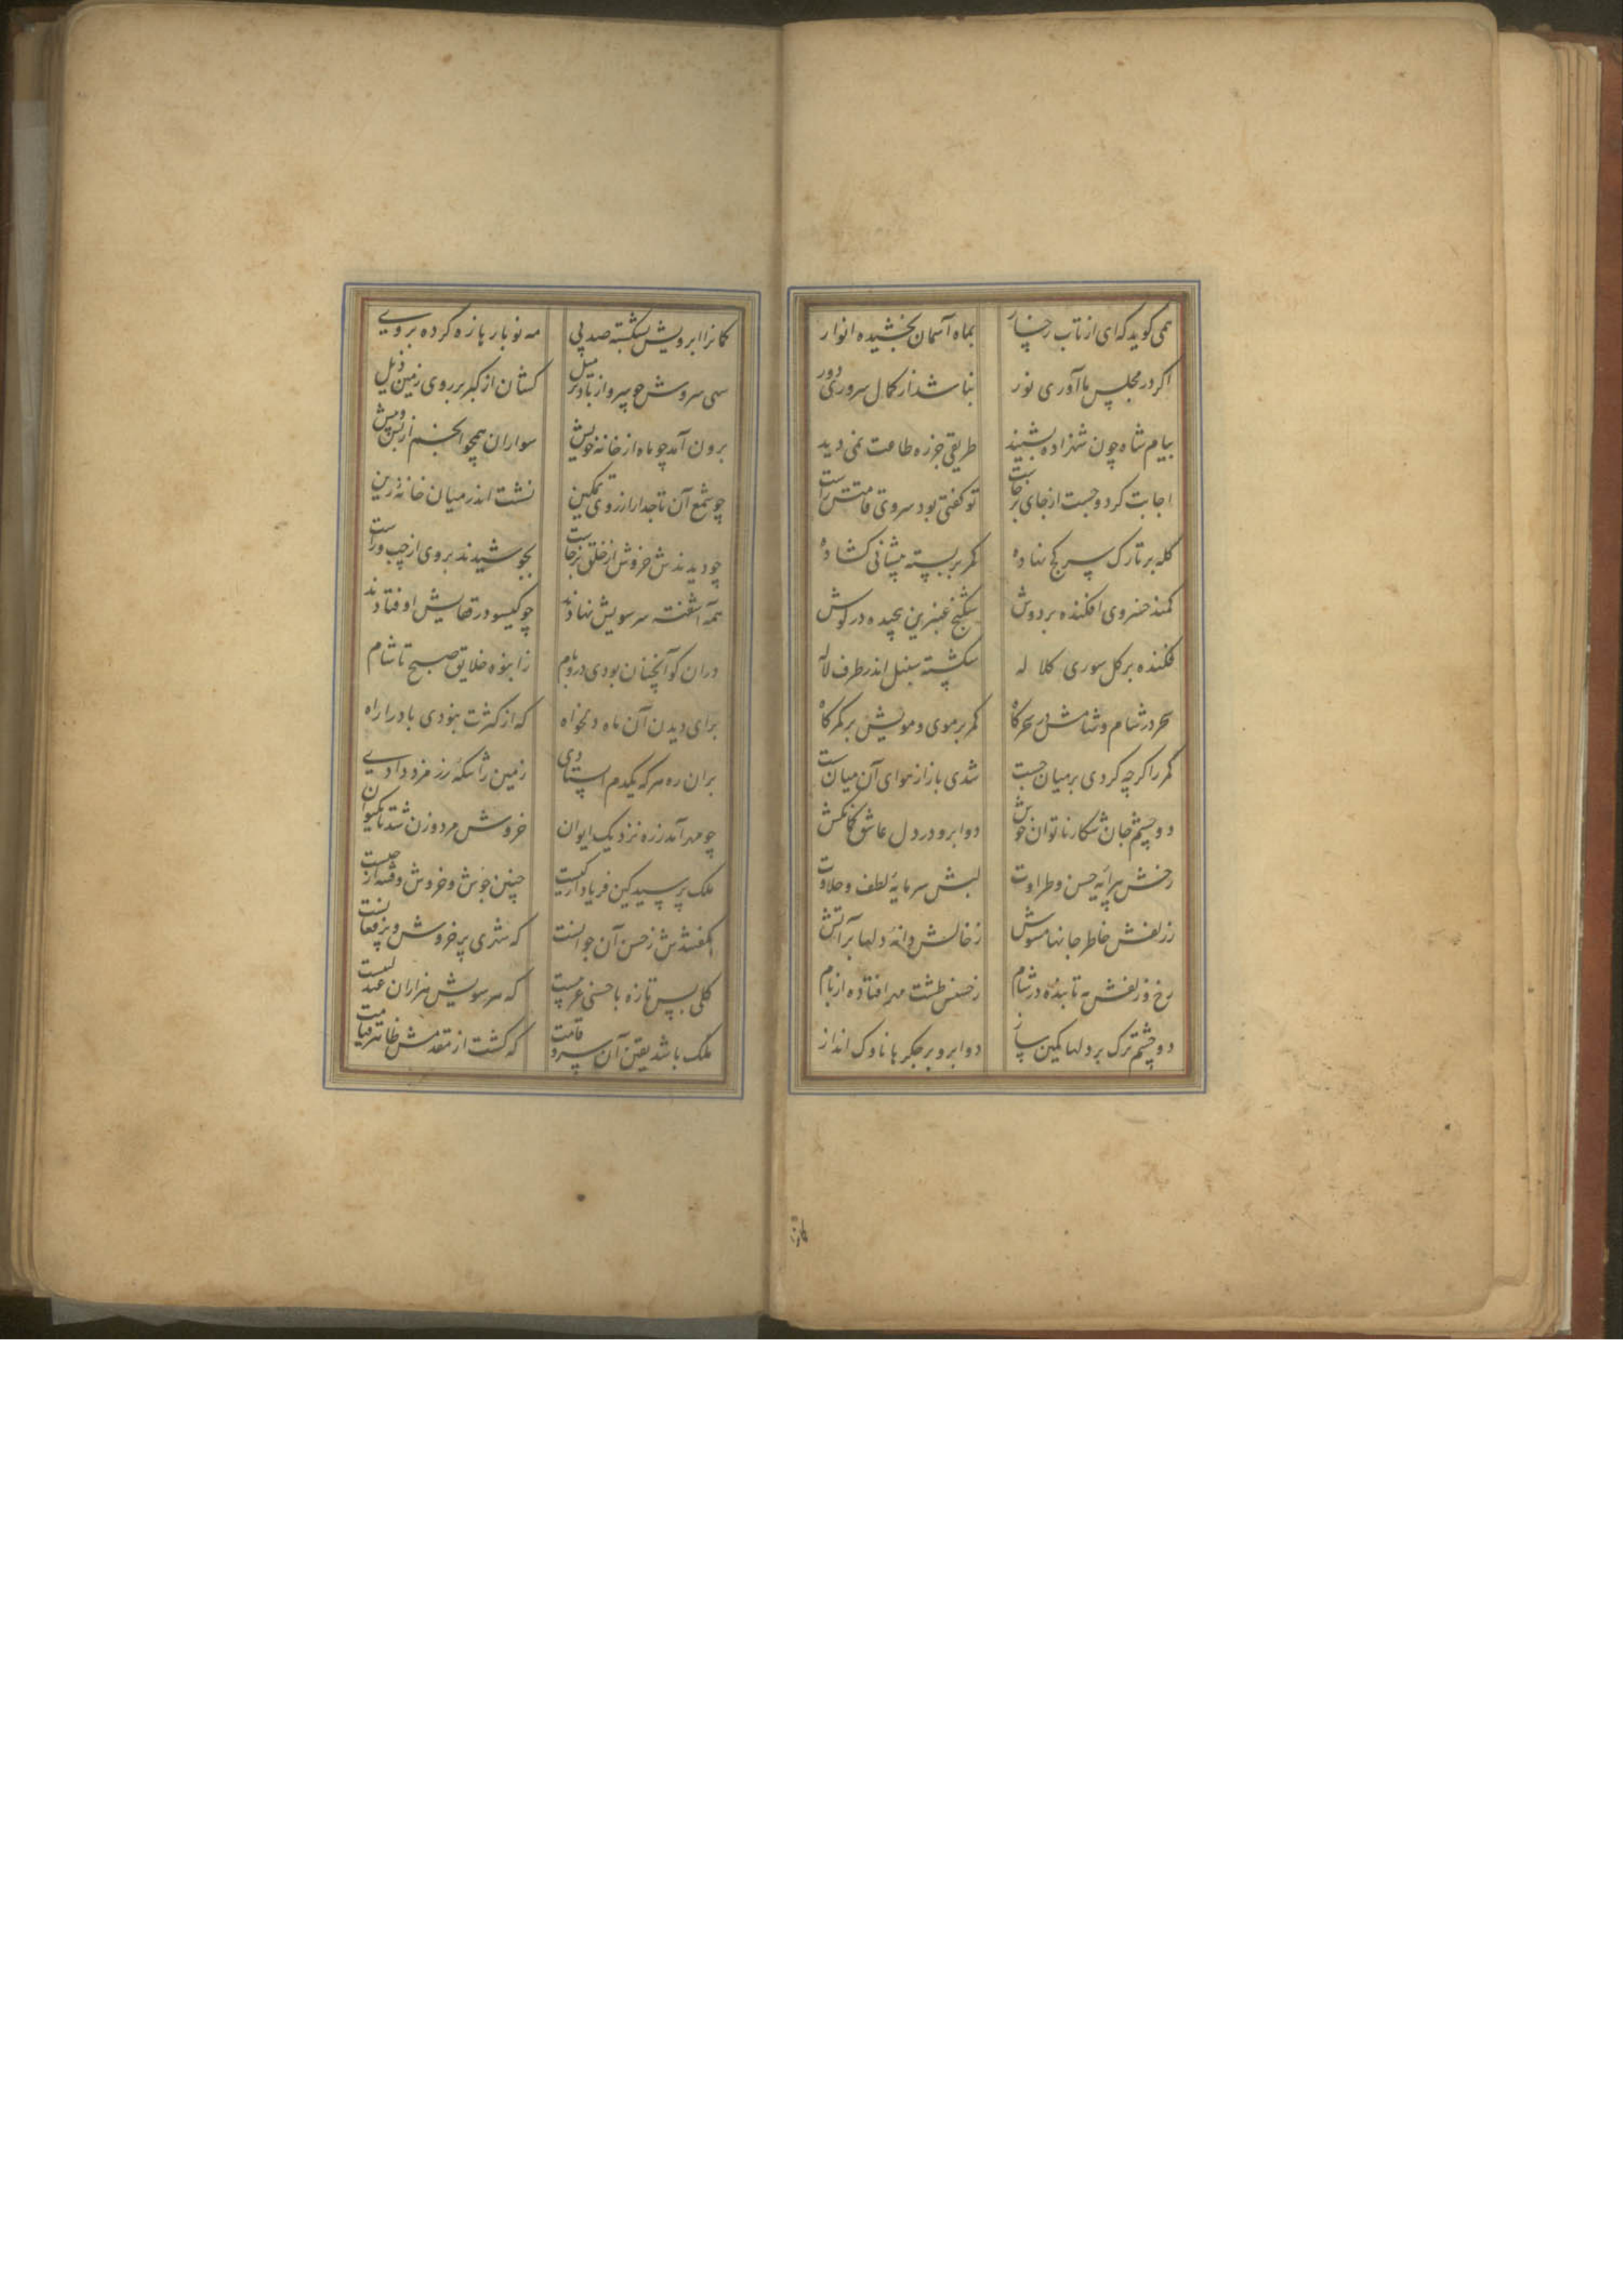 همی کوید که ای از تاب رخسار بماه آسمان بخشیده انوار
اکر در مجلس ما آوری نور نباشد از کمال سروری دور
پیام شاه چون شهزاده بشنید طریقی جز ره طاعت نمی دید
اجابت کرد و جست از جای برخاست تو کفتی بود سروی قامتش راست
کله بر تارک سر کج نهاده کمر بر بسته پیشانی کشاده
کمند خسروی افکنده بر دوش شکنج عنبرین پیچیده در کوش
فکنده بر کل سوری کلاله شکسته سنبل اندر طرف لاله
سحر در شام و شامش در سحرکاه کمر بر موی و مویش بر کمرکاه
کمر را کرچه کردی بر میان چست شدی باز از هوای آن میان سست
دو چشم جان شکار ناتوان خوش دو ابرو در دل عاشق کمانکش
رخش پیرایه حسن و طراوت لبش سرمایه لطف و حلاوت
ز زلفش خاطر جانها مشوش ز خالش دانه دلها بر آتش
رخ و زلفش مه تابنده در شام ز حسنش طشت مهر افتاده از بام
دو چشم ترک بر دلها کمین ساز دو ابرو بر جکرها ناوک انداز
کمانرا
کمانرا ابرویش بشکسته صد پی مه نو بار بازه کرده بر وی
سهی سروش چو سرو از باد در میل کشان از کبر بر روی زمین ذیل
برون آمد چو ماه از خانه خویش سواران همچو انجم از پس و پیش
چو شمع آن تاجدار از روی تمکین نشست اندر میان خانه زین
چو دیدندش خروش از خلق برخاست بجوشیدند بروی از چپ و راست
همه آشفته سر سویش نهادند چو کیسو در قفایش اوفتادند
دران کو آنچنان بودی در و بام ز انبوه خلایق صبح تا شام
برای دیدن آن ماه دلخواه که از کثرت نبودی باد را راه
بران ره هر که یکدم ایستادی زمین را سکه زر مزد دادی
چو مهر آمد ز ره نزدیک ایوان خروش مرد و زن شد تا بکیوان
ملک پرسید کین فریاد از کیست چنین جوش و خروش و فتنه از چیست
بکفتندش ز حسن آن جوانست که شهری پر خروش و پر فغانست
کلی بس تازه با حسنی غریبست که هر سویش هزاران عندلیبست
ملک باشد یقین آن سرو قامت که کشت از مقدمش ظاهر قیامت